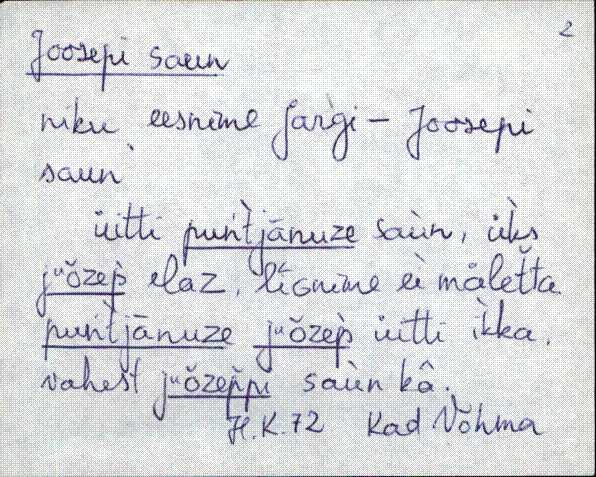 2
Joosepi saun
niku eesnime järgi – Joosepi
saun
üitti puńt̀jānuze saùn, ük̀s
jᵘõzep̀ elaz, līɢnime eì måleťta
puńt̀jānuze jᵘõzep̀ üitti ìkka.
vahest jᵘõzep̀pi saùn kâ.
H.K. 72 Kad Võhma